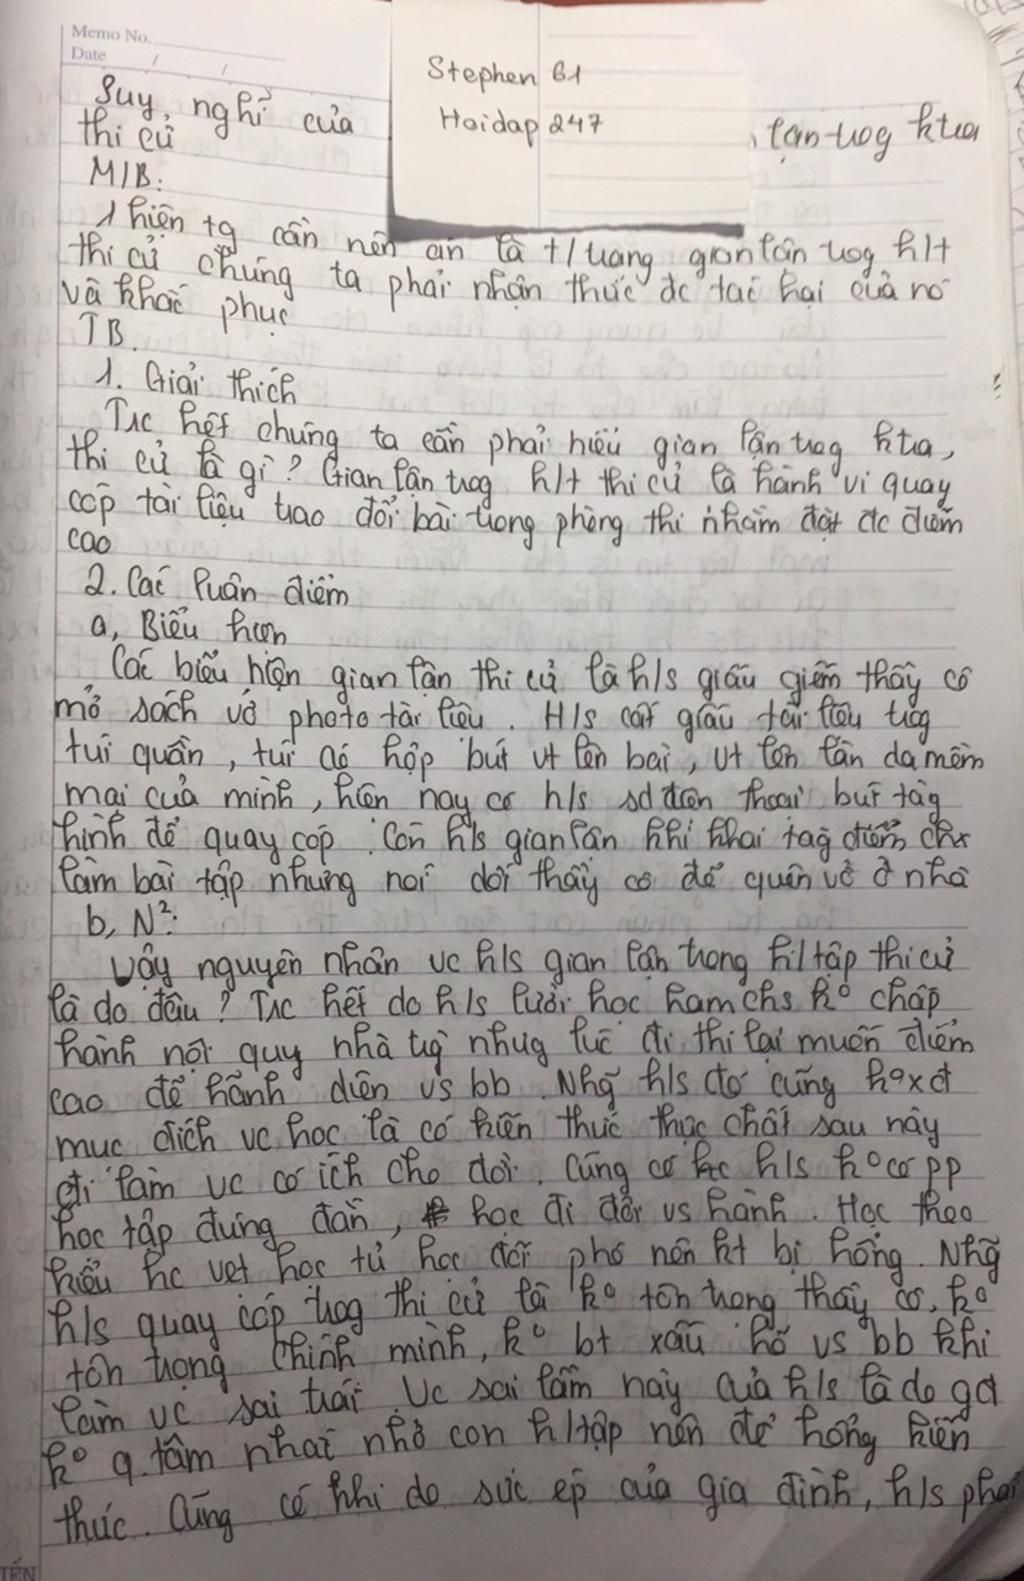 Memo No.
Date / /
Stephen 61
Hoidap 247
Suy nghĩ của
lận trog ktra
thi cử
M/B:
1 hiện tg cần nên án là t/trạng gian lận trog h/t
thi cử chúng ta phải nhận thức đc tác hại của nó
và khắc phục
TB.
1. Giải thích
Trc hết chúng ta cần phải hiểu gian lận trog ktra,
thi cử là gì? Gian lận trog h/t thi cử là hành vi quay
cóp tài liệu trao đổi bài trong phòng thi nhằm đạt đc điểm
cao
2. Các luân điểm
a, Biểu hiện
Các biểu hiện gian lận thi cử là h/s giấu giếm thầy cô
mở sách vở photo tài liệu. H/s cất giấu tài liệu trog
túi quần, túi áo hộp bút vt lên bài, vt lên làn da mềm
mại của mình, hiện nay có h/s sd điện thoại bút tàg
hình để quay cóp. Còn h/s gian lận khi khai tag điểm chx
làm bài tập nhưng nói dối thầy cô để quên vở ở nhà
b, N²:
Vậy nguyên nhân vc h/s gian lận trong h/tập thi cử
là do đâu? Trc hết do h/s lười học ham chs k° chấp
hành nội quy nhà trg nhug lúc đi thi lại muốn điểm
cao để hãnh diện vs bb. Nhg̃ h/s đó cũng k° xđ
mục đích vc học là có kiến thức thực chất sau này
đi làm vc có ích cho đời. Cũng có h/s k° có pp
học tập đúng đắn, học đi đôi vs hành. Học theo
kiểu hc vẹt học tủ học đối phó nên kt bị hổng. Nhg̃
h/s quay cóp trog thi cử là k° tôn trọng thầy cô, k°
tôn trọng chính mình, k° bt xấu hổ vs bb khi
làm vc sai trái. Vc sai lầm này của h/s là do gđ
k° q.tâm nhắc nhở con h/tập nên để hổng kiến
thức. Cũng có khi do sức ép của gia đình, h/s phải